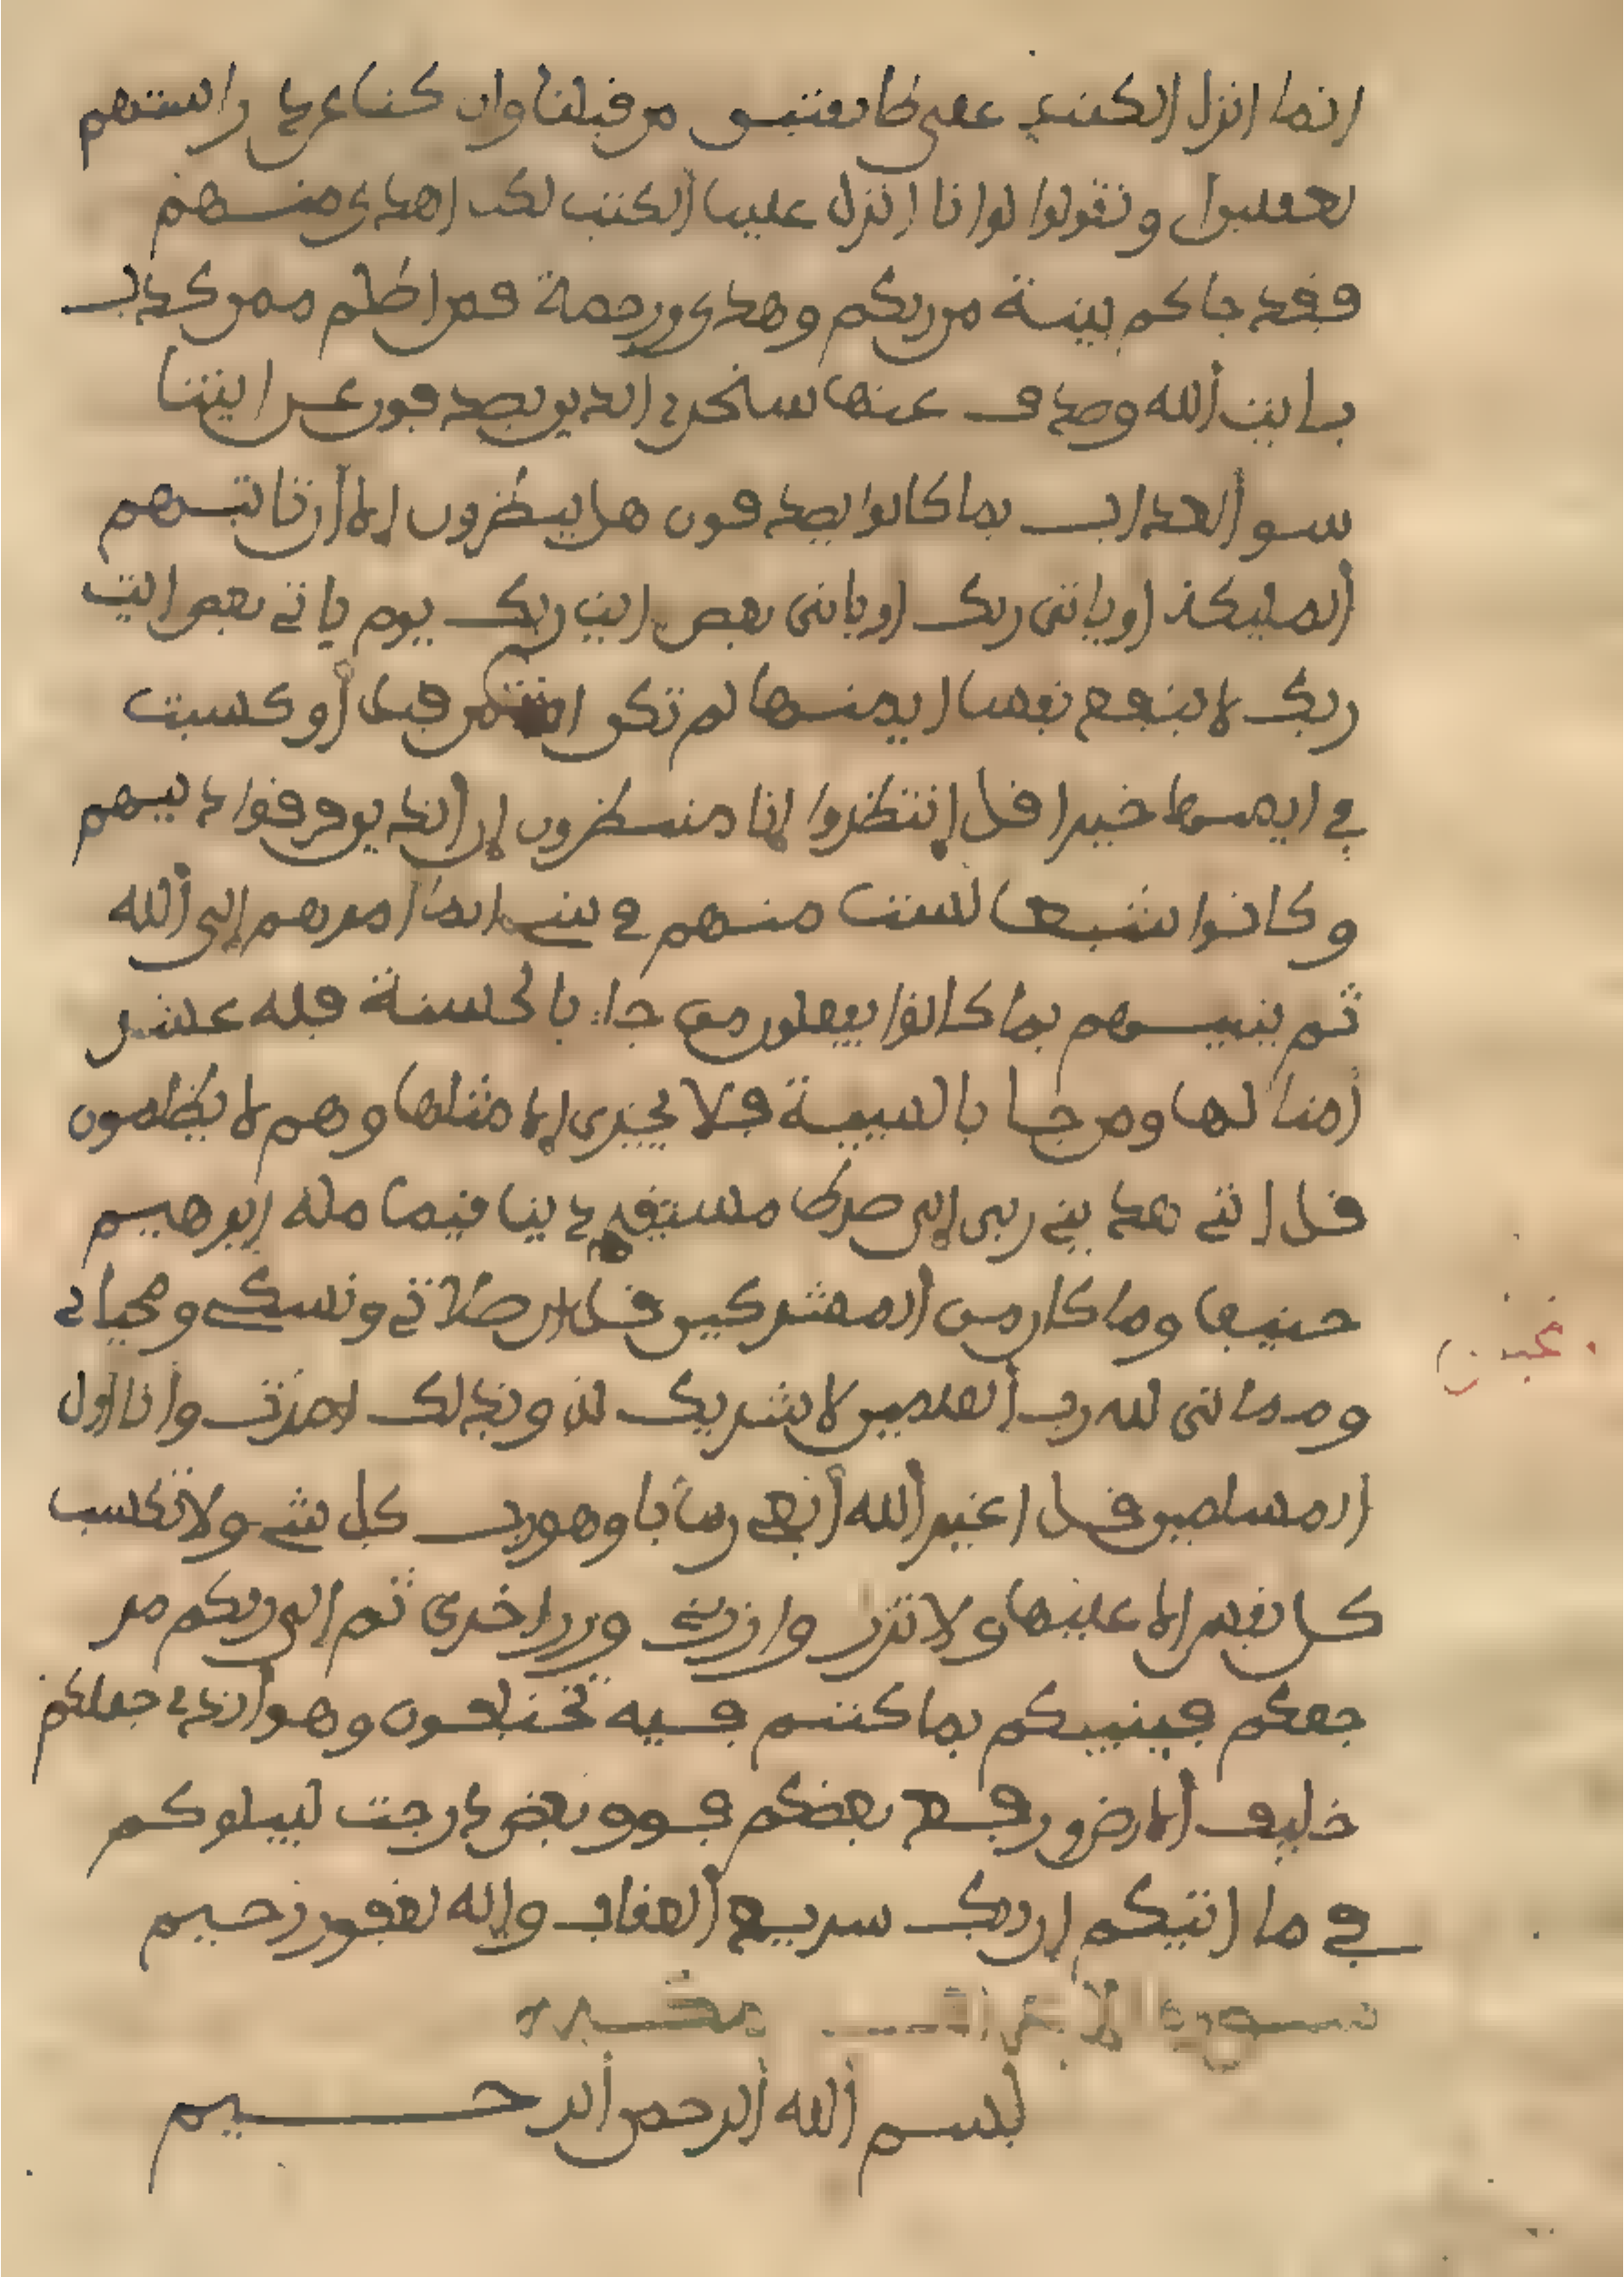 انما انزل الكتب على طايفتين من قبلنا وان كنا عن دراستهم
لغفلين او تقولوا لو انا انزل علينا الكتب لكنا اهدى منهم
فقد جاكم بينة من ربكم وهدى ورحمة فمن اظلم ممن كذب
بايت الله وصدف عنها سنجزي الذين يصدفون عن ايتنا
سو العذاب بما كانوا يصدفون هل ينظرون الا ان تاتيهم
المليكة او ياتي ربك او ياتي بعض ايت ربك يوم ياتي بعض ايت
ربك لا ينفع نفسا ايمنها لم تكن امنت من قبل او كسبت
في ايمنها خيرا قل انتظروا انا منتظرون ان الذين فرقوا دينهم
وكانوا شيعا لست منهم في شي انما امرهم الى الله
ثم ينبيهم بما كانوا يفعلون من جاء بالحسنة فله عشر
امثالها ومن جا بالسيية فلا يجزى الا مثلها وهم لا يظلمون
قل انني هديني ربي الى صرط مستقيم دينا قيما ملة ابرهيم
حنيفا وما كان من المشركين قل ان صلاتي ونسكي ومحياي
ومماتي لله رب العلمين لا شريك له وبذلك امرت وانا اول
المسلمين قل اغير الله ابغي ربا وهو رب كل شي ولا تكسب
كل نفس الا عليها ولا تزر وازرة وزر اخرى ثم الى ربكم مر
جعكم فينبيكم بما كنتم فيه تختلفون وهو الذي جعلكم
خليف الارض ورفع بعضكم فوق بعض درجت ليبلوكم
في ما اتيكم ان ربك سريع العقاب وانه لغفور رحيم
سورة الاعراف
بسم الله الرحمن الرحيم